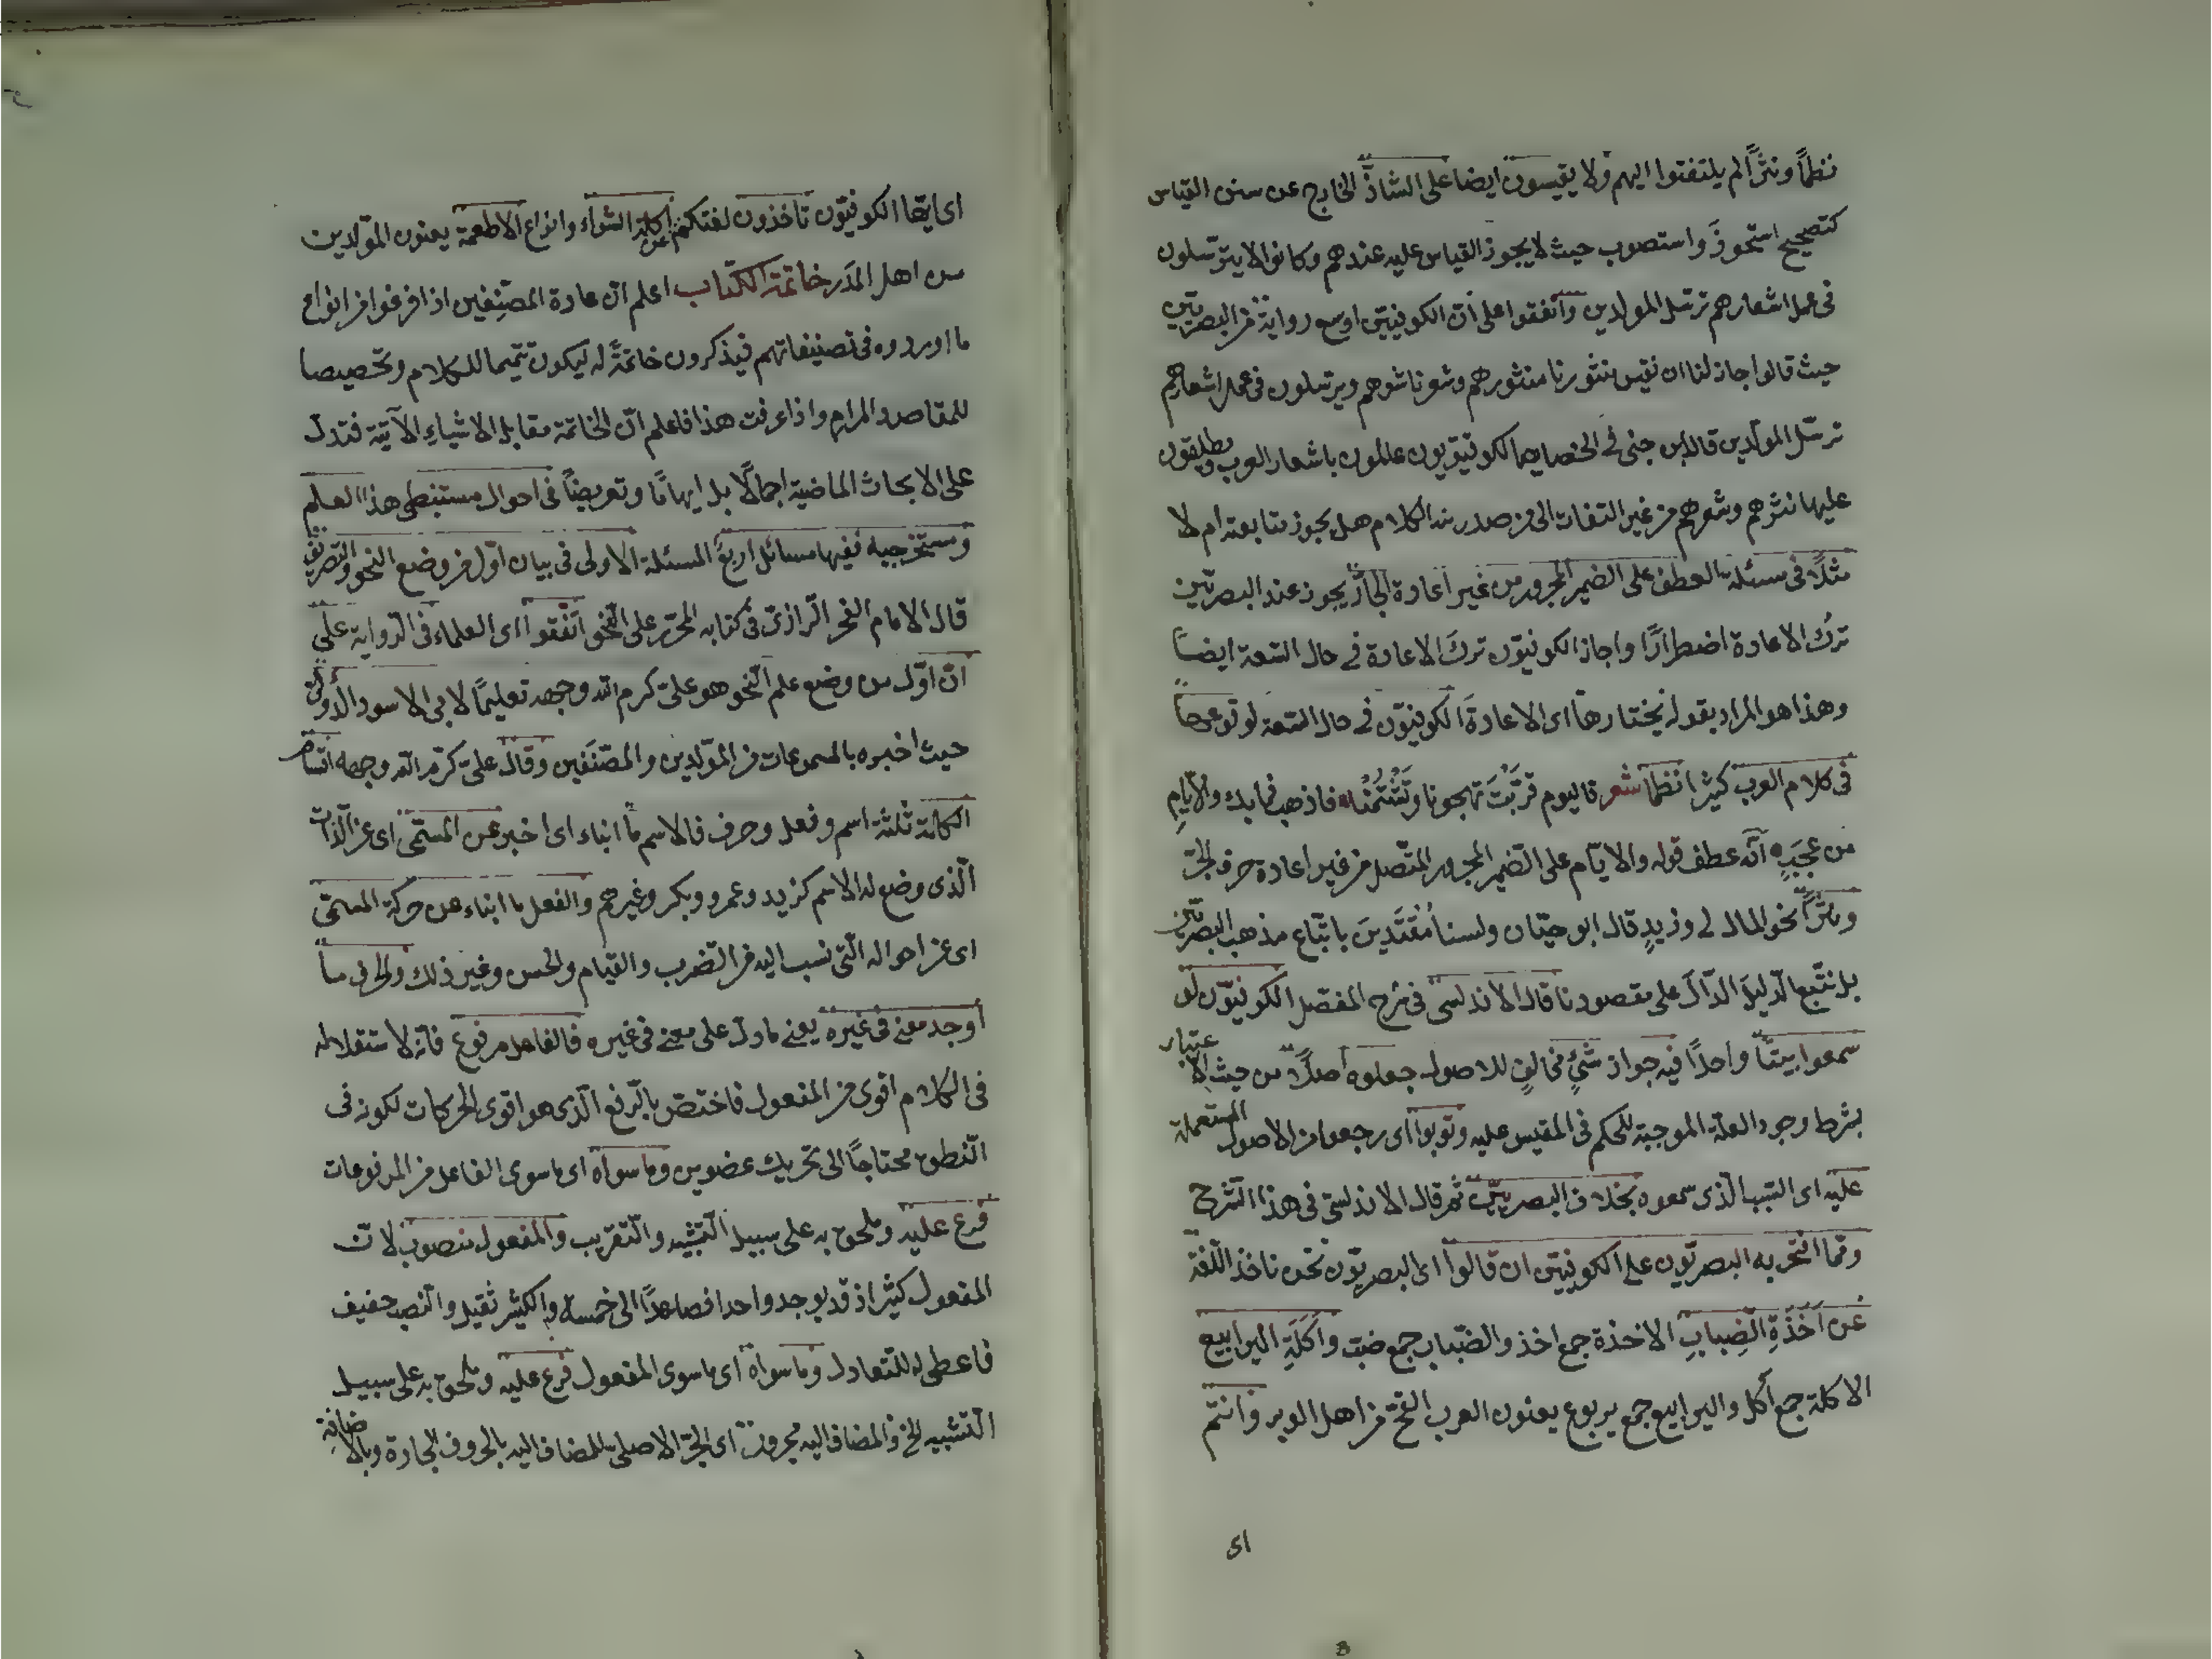 نظمًا ونثرًا لم يلتفتوا اليهم ولا يقيسون ايضا على الشاذّ الخارج عن سنن القياس
كتصحيح استحوذَ واستصوب حيث لا يجوز القياس عليه عندهم وكانوا لا يترسّلون
فى عمل اشعارهم ترسّل المولدين واتفقوا على انّ الكوفيّين اوسع رواية من البصريّين
حيث قالوا جاز لنا ان نقيس منثورنا منثورهم وشعرنا شعرهم ويترسلون فى عمل اشعارهم
ترسّل المولّدين قال ابن جنى فى الخصايص الكوفيّون عالمون باشعار العرب ويطلقون
عليها نثرهم وشعرهم من غير التفات الى من صدر منه الكلام هل يجوز متابعته ام لا
مثلًا فى مسئلة العطف على الضمير المجرور من غير اعادة الجارّ يجوز عند البصريّين
تركُ الاعادة اضطرارًا واجاز الكوفيّون تركَ الاعادة فى حال السّعة ايضًا
وهذا هو المراد بقوله يختارها اى الاعادةَ الكوفيّون فى حال السّعة لوقوعها
فى كلام العرب كثيرا نظمًا شعر فاليوم قرّبْتَ تهجونا وتَشْتُمُنا فاذهب فما بك والايّامِ
من عجبِ انّه عطف قوله والايّام على الضمير المجرور المتّصل من غير اعادة حرف الجرّ
ونثرًا نحو المال لى وزيدٍ قال ابو حيّان ولسنا مُقتَدِينَ باتّباع مذهب البصريّين
بل نتّبع الدّليلَ الدّالّ على مقصودنا قال الاندلسىّ فى شرح المفصّل الكوفيّون لو
سمعوا بيتًا واحدًا فيه جواز شئٍ مخالفٍ للاصول جعلوه اصلًا من حيث الاعتبار
بشرط وجود العلّة الموجبة للحكم فى المقيس عليه وبوّبوا اى رجعوا من الاصول المستعملة
عليه اى السّبب الّذى سمعوه بخلاف البصريّين ثمّ قال الاندلسىّ فى هذا الشّرح
وممّا افتخر به البصريّون على الكوفيّين ان قالوا اى البصريّون نحن ناخذ اللّغة
عن اَخَذَةِ الضِّبابِ الاخذة جمع اخذ والضّباب جمع ضبّ واَكَلَةِ اليرابيع
الاكلة جمع أكل واليرابيع جمع يربوع يعنون العرب القحّ من اهل الوبر وانتم
اى
اى ايّها الكوفيّون تاخذون لغتكم عن اكلة الشّواء وانواع الاطعمة يعنون المولّدين
من اهل المدَر خاتمة الكتاب اعلم انّ عادة المصنّفين اذا فرغوا من انواع
ما اوردوه فى تصنيفاتهم فيذكرون خاتمةً له ليكون تتميما للكلام وتحصيصا
للمقاصد والمرام واذا عرفت هذا فاعلم انّ الخاتمة مقابل الاشياءِ الآتية فتدلّ
على الابحاث الماضية اجمالًا بل ايهامًا وتعريضًا فى احوال مستنبطى هذا العلم
ومستخرجيه ففيها مسائل اربع المسئلة الاولى فى بيان اوّل من وضع النحو والتصريف
قال الامام الفخر الرّازىّ فى كتابه المحرّر على النّحو اتّفقوا اى العلماء فى الرّواية على
انّ اوّل من وضع علم النّحو هو علىّ كرم الله وجهه تعليمًا لابى الاسود الدّؤلىّ
حيث اخبره بالمسموعات من المولّدين والمصنّفين وقال علىّ كرّم الله وجهه اقسام
الكلمة ثلثة اسم وفعل وحرف فالاسم ما انباء اى اخبر عن المسمّى اى عن الذّات
الّذى وضع له الاسم كزيد وعمرو وبكر وغيرهم والفعل ما انباء عن حركة المسمّى
اى عن احواله الّتى نسب اليه من الضّرب والقيام والحس وغير ذلك والحرف ما
اوجد معنى فى غيره يعنى ما دلّ على معنى فى غيره فالفاعل مرفوع فانّه لاستقلاله
فى الكلام اقوى من المفعول فاختصّ بالرّفع الّذى هو اقوى الحركات لكونه فى
النّطق محتاجًا الى تحريك عضوين وما سواه اى ما سوى الفاعل من المرفوعات
فرع عليه وملحق به على سبيل التّشبيه والتّقريب والمفعول منصوب لانّ
المفعول كثير اذ قد يوجد واحدا فصاعدًا الى خمسة والكثير ثقيل والنّصب خفيف
فاعطى له للتّعادل وما سواه اى ما سوى المفعول فرع عليه وملحق به على سبيل
التّشبيه الخ والمضاف اليه مجرور اى الجرّ الاصلىّ للمضاف اليه بالحروف الجارة وبالاضافة